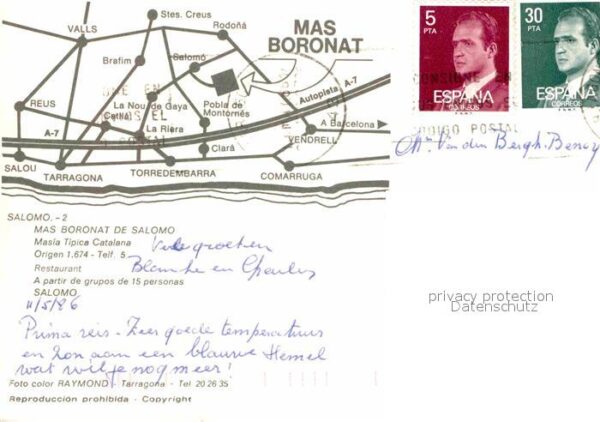 Stes. Creus
VALLS
Rodoñá
MAS
BORONAT
Brafim
Salomó
REUS
La Nou de Gaya
Pobla de
Montornés
Autopista A-7
Catllá
La Riera
A-7
Clará
VENDRELL
A Barcelona
SALOU
TARRAGONA
TORREDEMBARRA
COMARRUGA
5
PTA
ESPAÑA
CORREOS
30
PTA
ESPAÑA
CORREOS
CONSIGNE EN
CODIGO POSTAL
Van den Bergh-
SALOMO. - 2
MAS BORONAT DE SALOMO
Masía Típica Catalana
Origen 1.674 - Telf. 5
Restaurant
A partir de grupos de 15 personas
SALOMO
Vele groeten
Blanche en Charles
11/5/86
Prima reis - Zeer goede temperatuur
en zon aan een blauwe Hemel
wat wil je nog meer!
Foto color RAYMOND - Tarragona - Tel 20 26 35
Reproducción prohibida - Copyright
privacy protection
Datenschutz